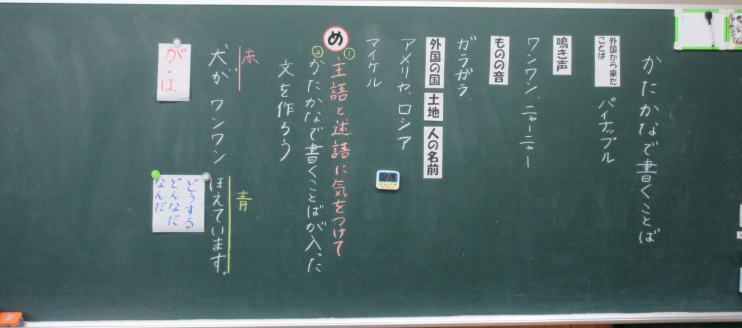 かたかなで書くことば
外国から来た
ことば
パイナップル
鳴き声
ワンワン、ニャーニャー
ものの音
ガラガラ
外国の国 土地 人の名前
アメリカ、ロシア
マイケル
め
①主語と述語に気をつけて
②かたかなで書くことばが入った
文を作ろう
赤
犬が ワンワン ほえています。
青
が・は
どうする
どんなだ
なんだ